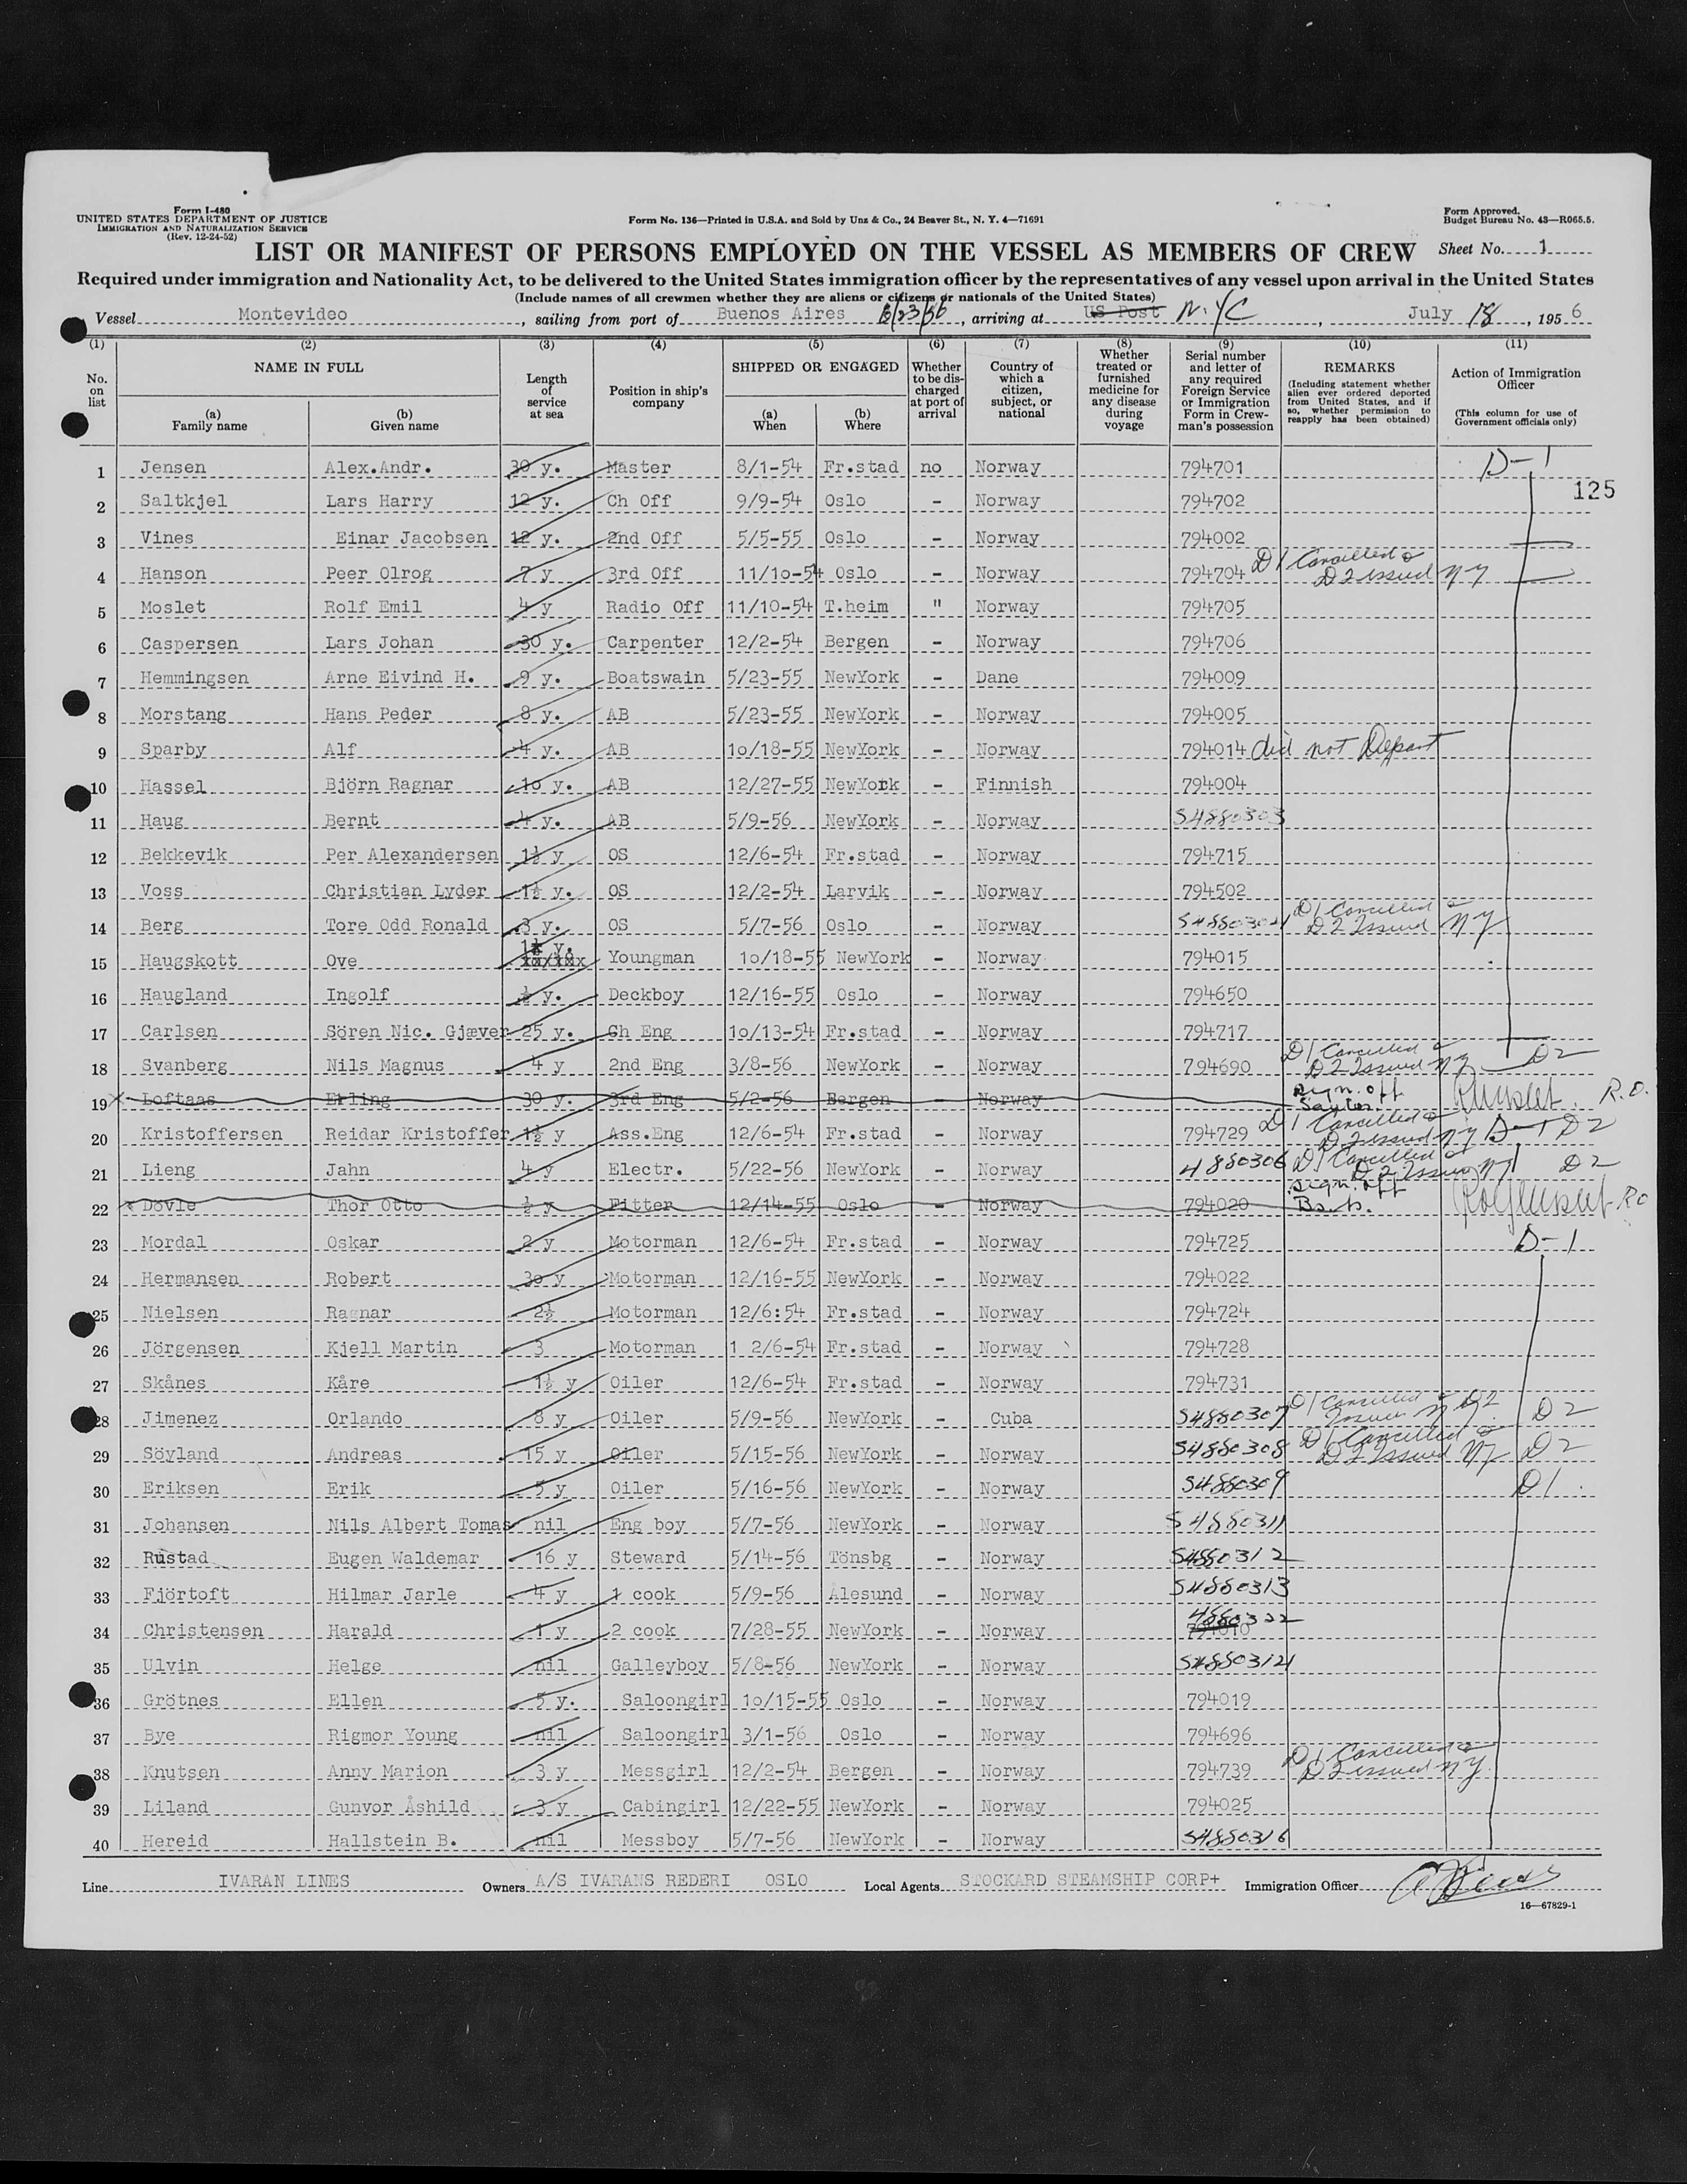 Form I-480
UNITED STATES DEPARTMENT OF JUSTICE
IMMIGRATION AND NATURALIZATION SERVICE
(Rev. 12-24-52)
Form No. 136—Printed in U.S.A. and Sold by Unz & Co., 24 Beaver St., N. Y. 4—71691
Form Approved.
Budget Bureau No. 43—R065.5.
LIST OR MANIFEST OF PERSONS EMPLOYED ON THE VESSEL AS MEMBERS OF CREW
Sheet No. 1
Required under immigration and Nationality Act, to be delivered to the United States immigration officer by the representatives of any vessel upon arrival in the United States
(Include names of all crewmen whether they are aliens or citizens or nationals of the United States)
Vessel Montevideo, sailing from port of Buenos Aires 6/23/56, arriving at US Post N.YC, July 18, 1956
(1) (2) (3) (4) (5) (6) (7) (8) (9) (10) (11)
No. on list
NAME IN FULL
(a) Family name
(b) Given name
Length of service at sea
Position in ship's company
SHIPPED OR ENGAGED
(a) When
(b) Where
Whether to be discharged at port of arrival
Country of which a citizen, subject, or national
Whether treated or furnished medicine for any disease during voyage
Serial number and letter of any required Foreign Service or Immigration Form in Crewman's possession
REMARKS
(Including statement whether alien ever ordered deported from United States, and if so, whether permission to reapply has been obtained)
Action of Immigration Officer
(This column for use of Government officials only)
1 Jensen Alex.Andr. 30 y. Master 8/1-54 Fr.stad no Norway 794701 D-1
125
2 Saltkjel Lars Harry 12 y. Ch Off 9/9-54 Oslo - Norway 794702
3 Vines Einar Jacobsen 12 y. 2nd Off 5/5-55 Oslo - Norway 794002
4 Hanson Peer Olrog 7 y 3rd Off 11/10-54 Oslo - Norway 794704 D1 Cancelled & D2 issued NY
5 Moslet Rolf Emil 4 y Radio Off 11/10-54 T.heim " Norway 794705
6 Caspersen Lars Johan 30 y. Carpenter 12/2-54 Bergen - Norway 794706
7 Hemmingsen Arne Eivind H. 9 y. Boatswain 5/23-55 NewYork - Dane 794009
8 Morstang Hans Peder 8 y. AB 5/23-55 NewYork - Norway 794005
9 Sparby Alf 4 y. AB 10/18-55 NewYork - Norway 794014 did not Depart
10 Hassel Björn Ragnar 10 y. AB 12/27-55 NewYork - Finnish 794004
11 Haug Bernt 4 y. AB 5/9-56 NewYork - Norway S4880303
12 Bekkevik Per Alexandersen 1½ y OS 12/6-54 Fr.stad - Norway 794715
13 Voss Christian Lyder 1½ y. OS 12/2-54 Larvik - Norway 794502
14 Berg Tore Odd Ronald 3 y. OS 5/7-56 Oslo - Norway S4880304 D1 Cancelled & D2 Issued NY
15 Haugskott Ove 1½ y. Youngman 10/18-55 NewYork - Norway 794015
16 Haugland Ingolf ½ y. Deckboy 12/16-55 Oslo - Norway 794650
17 Carlsen Sören Nic. Gjæver 25 y. Ch Eng 10/13-54 Fr.stad - Norway 794717
18 Svanberg Nils Magnus 4 y 2nd Eng 3/8-56 NewYork - Norway 794690 D1 Cancelled & D2 Issued NY D2
19 Loftaas Erling 30 y. 3rd Eng 5/2-56 Bergen - Norway sign. off Santos. R.O.
20 Kristoffersen Reidar Kristoffer 1½ y Ass.Eng 12/6-54 Fr.stad - Norway 794729 D1 Cancelled & D2 issued NY D-1 D2
21 Lieng Jahn 4 y Electr. 5/22-56 NewYork - Norway 4880306 D1 Cancelled & D2 Issued NY D2
22 Dövle Thor Otto ½ y Fitter 12/14-55 Oslo - Norway 794020 sign. off B.A. RO
23 Mordal Oskar 2 y Motorman 12/6-54 Fr.stad - Norway 794725 D-1
24 Hermansen Robert 30 y Motorman 12/16-55 NewYork - Norway 794022
25 Nielsen Ragnar 2½ Motorman 12/6:54 Fr.stad - Norway 794724
26 Jörgensen Kjell Martin 3 Motorman 1 2/6-54 Fr.stad - Norway 794728
27 Skånes Kåre 1½ y Oiler 12/6-54 Fr.stad - Norway 794731
28 Jimenez Orlando 8 y Oiler 5/9-56 NewYork - Cuba S4880307 D1 Cancelled & D2 Issued NY D2
29 Söyland Andreas 15 y Oiler 5/15-56 NewYork - Norway S4880308 D1 Cancelled & D2 Issued NY D2
30 Eriksen Erik 5 y Oiler 5/16-56 NewYork - Norway S4880309 D1
31 Johansen Nils Albert Tomas nil Eng boy 5/7-56 NewYork - Norway S4880311
32 Rustad Eugen Waldemar 16 y Steward 5/14-56 Tönsbg - Norway S4880312
33 Fjörtoft Hilmar Jarle 4 y 1 cook 5/9-56 Ålesund - Norway S4880313
34 Christensen Harald 1 y 2 cook 7/28-55 NewYork - Norway 4880322 794010
35 Ulvin Helge nil Galleyboy 5/8-56 NewYork - Norway S4880314
36 Grötnes Ellen 5 y. Saloongirl 10/15-55 Oslo - Norway 794019
37 Bye Rigmor Young nil Saloongirl 3/1-56 Oslo - Norway 794696
38 Knutsen Anny Marion 3 y Messgirl 12/2-54 Bergen - Norway 794739 D1 Cancelled & D2 issued NY.
39 Liland Gunvor Åshild 3 y Cabingirl 12/22-55 NewYork - Norway 794025
40 Hereid Hallstein B. nil Messboy 5/7-56 NewYork - Norway S4880316
Line IVARAN LINES Owners A/S IVARANS REDERI OSLO Local Agents STOCKARD STEAMSHIP CORP+ Immigration Officer
16—67829-1